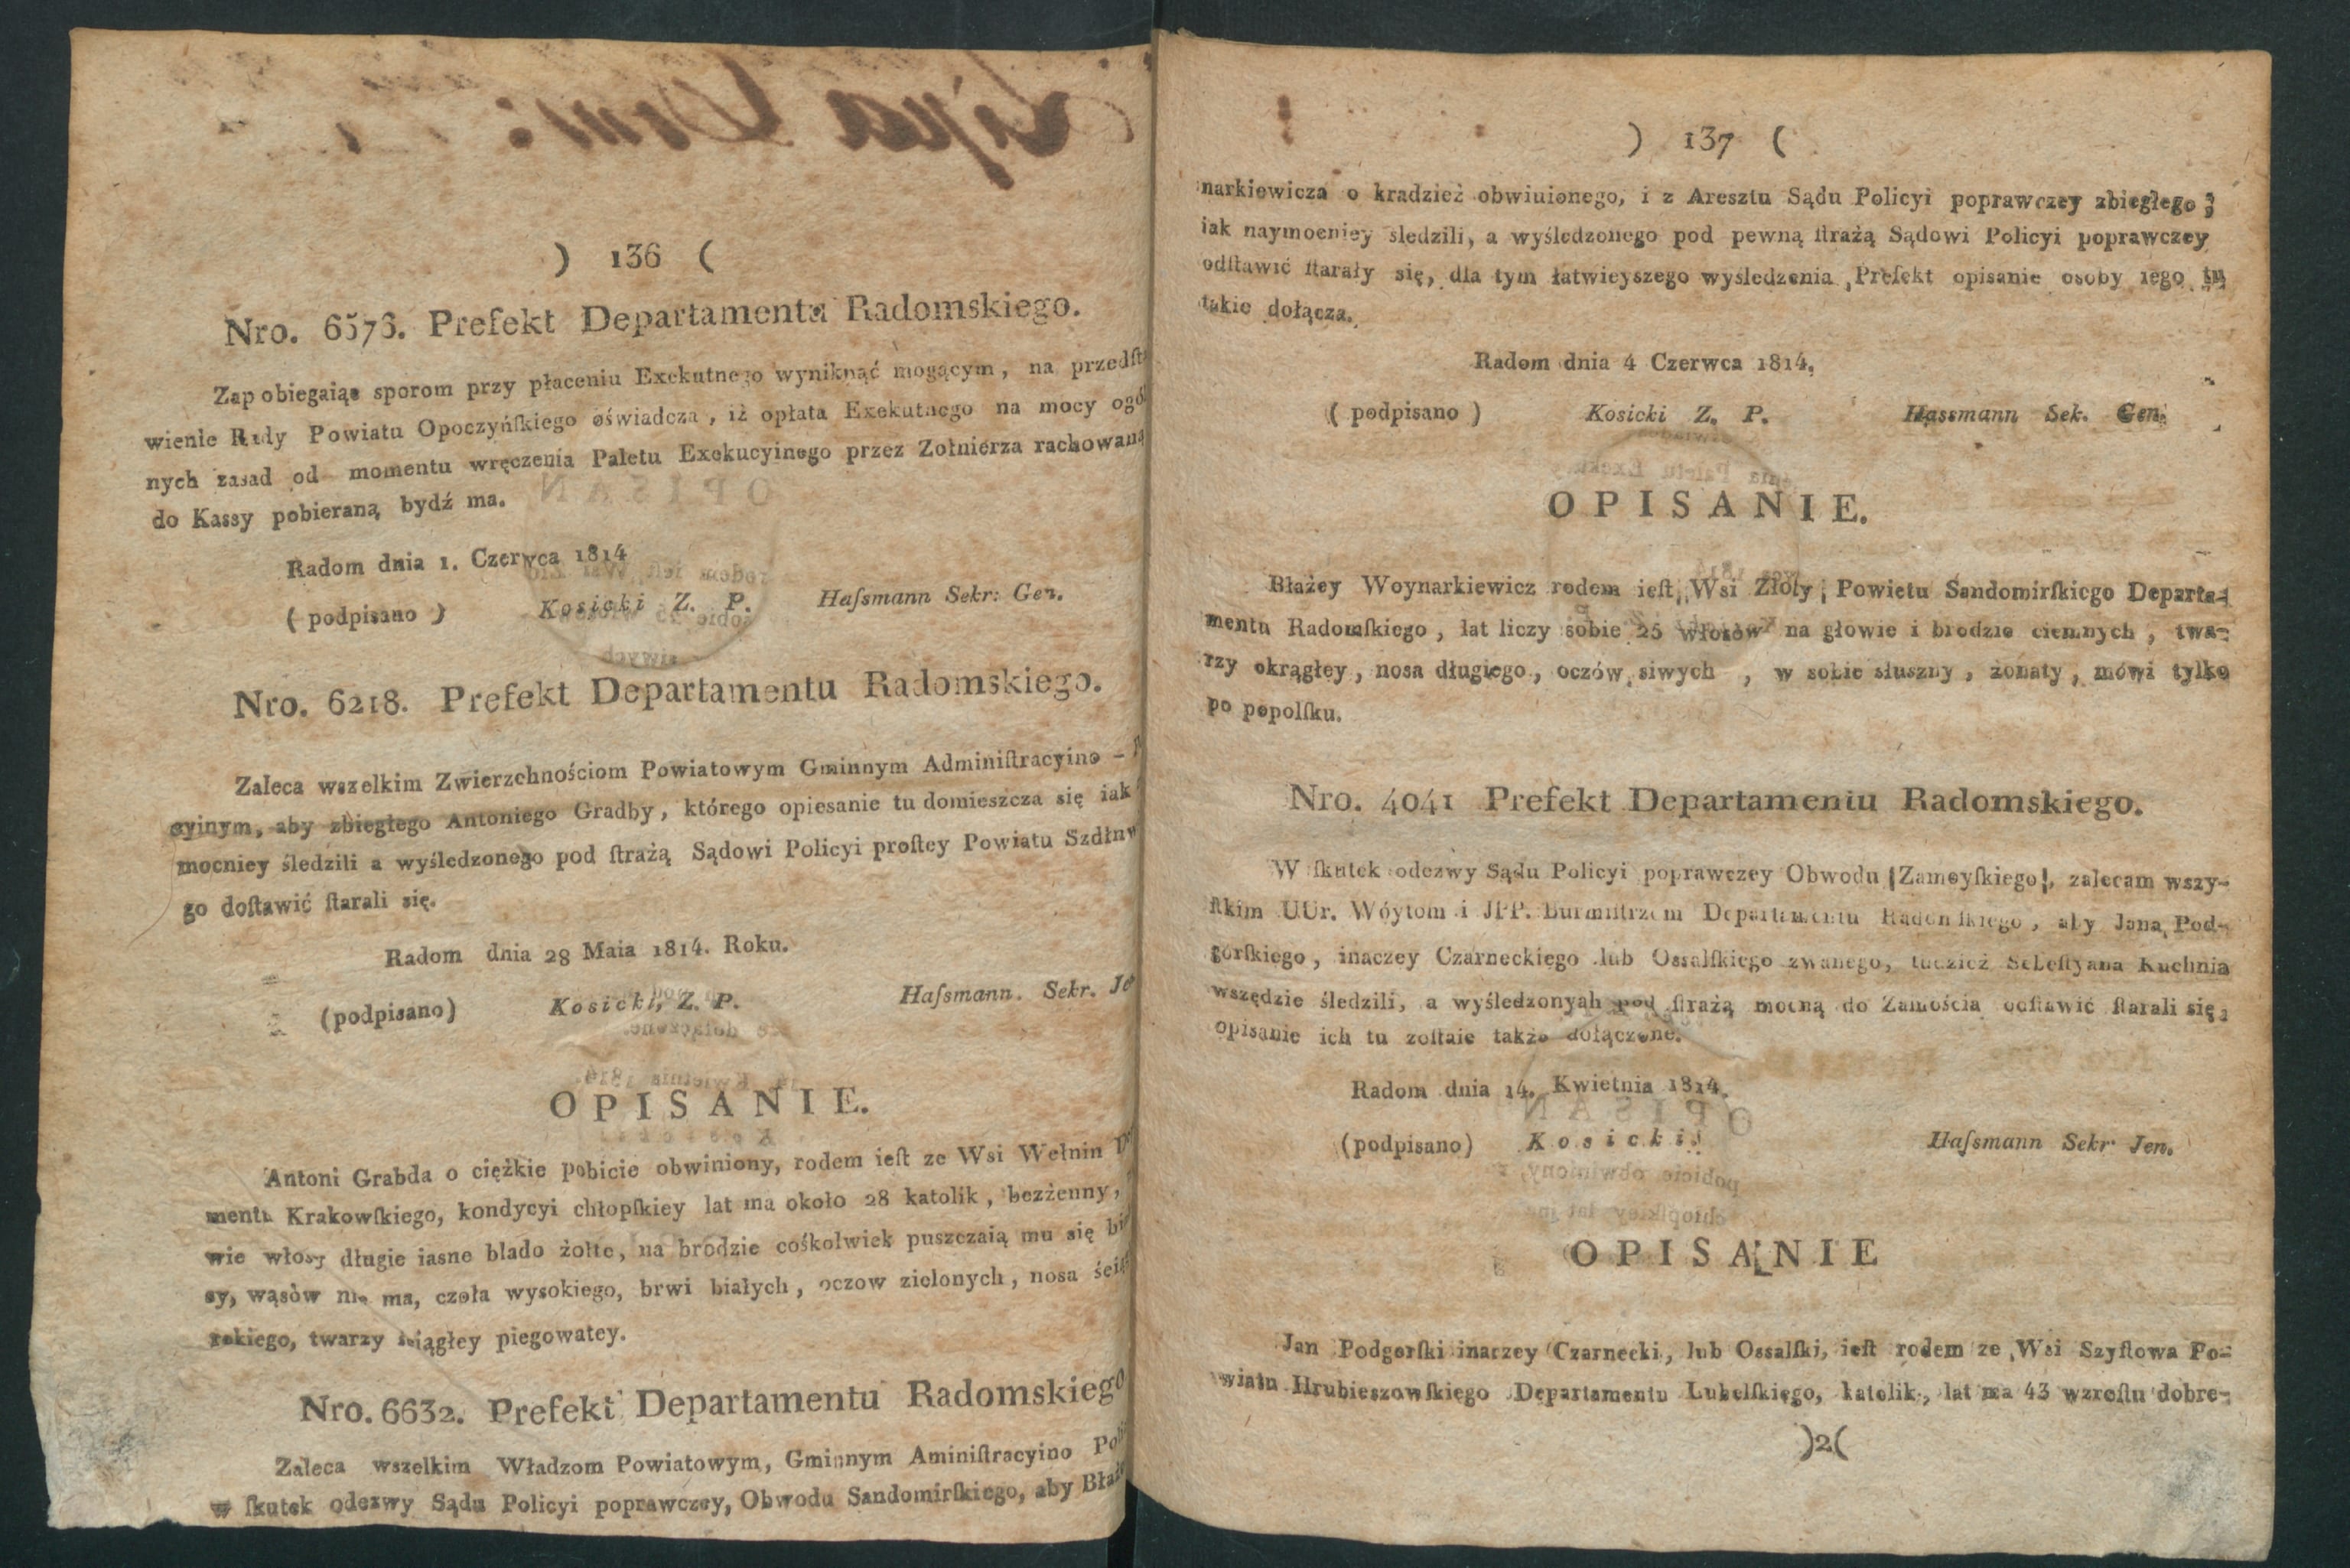 ) 136 (
Nro. 6576. Prefekt Departamentu Radomskiego.
Zapobiegaiąc sporom przy płaceniu Exekutnego wyniknąć mogącym, na przedſt
wienie Rady Powiatu Opoczyńſkiego oświadcza, iż opłata Exekutnego na mocy ogó
nych zasad od momentu wręczenia Paletu Exekucyinego przez Zołnierza rachowaną
do Kassy pobieraną bydź ma.
Radom dnia 1. Czerwca 1814
( podpisano ) Kosicki Z. P. Haſsmann Sekr: Gen.
Nro. 6218. Prefekt Departamentu Radomskiego.
Zaleca wszelkim Zwierzchnościom Powiatowym Gminnym Adminiſtracyino - P
cyinym, aby zbiegłego Antoniego Gradby, którego opiesanie tu domieszcza się iak
mocniey śledzili a wyśledzonego pod ſtrażą Sądowi Policyi proſtey Powiatu Szdłnw
go doſtawić ſtarali się.
Radom dnia 28 Maia 1814. Roku.
(podpisano) Kosicki, Z. P. Haſsmann. Sekr. Je
OPISANIE.
Antoni Grabda o ciężkie pobicie obwiniony, rodem ieſt ze Wsi Wełnin
mentu Krakowſkiego, kondycyi chłopſkiey lat ma około 28 katolik, bezżenny,
wie włosy długie iasne blado żołte, na brodzie cośkolwiek puszczaią mu się
sy, wąsòw nie ma, czoła wysokiego, brwi białych, oczow zielonych, nosa
rokiego, twarzy ściągłey piegowatey.
Nro. 6632. Prefekt Departamentu Radomskiego
Zaleca wszelkim Władzom Powiatowym, Gminnym Aminiſtracyino
w ſkutek odezwy Sądu Policyi poprawczey, Obwodu Sandomirſkiego, aby Błaże
) 137 (
narkiewicza o kradzież obwiuionego, i z Aresztu Sądu Policyi poprawczey zbiegłego;
iak naymocniey śledzili, a wyśledzonego pod pewną ſtrażą Sądowi Policyi poprawczey
odſtawić ſtarały się, dla tym łatwieyszego wyśledzenia Prefekt opisanie osoby iego tu
takie dołącza.
Radom dnia 4 Czerwca 1814.
( podpisano ) Kosicki Z. P. Hassmann Sek. Gen.
OPISANIE.
Błażey Woynarkiewicz rodem ieſt Wsi Złoty, Powietu Sandomirſkiego Departa-
mentu Radomſkiego, lat liczy sobie 25 włosów na głowie i brodzie ciemnych, twa-
rzy okrągłey, nosa długiego, oczów siwych, w sobie słuszny, żonaty, mówi tylko
po popolſku.
Nro. 4041 Prefekt Departamentu Radomskiego.
W ſkutek odezwy Sądu Policyi poprawczey Obwodu Zamoyſkiego, zalecam wszy-
ſtkim UUr. Wóytom i JPP. Burmiſtrzom Departamentu Radomſkiego, aby Jana Pod-
gorſkiego, inaczey Czarneckiego lub Ossalſkiego zwanego, tudzież Sebeſtyana Kuchnia
wszędzie śledzili, a wyśledzonyah pod ſtrażą mocną do Zamościa odſtawić ſtarali się,
opisanie ich tu zoſtaie także dołączone.
Radom dnia 14. Kwietnia 1814.
(podpisano) Kosicki. Haſsmann Sekr Jen.
OPISANIE
Jan Podgorſki inaczey Czarnecki, lub Ossalſki, ieſt rodem ze Wsi Szyſtowa Po-
wiatu Hrubieszowſkiego Departamentu Lubelſkiego, katolik, lat ma 43 wzroſtu dobre-
)2(